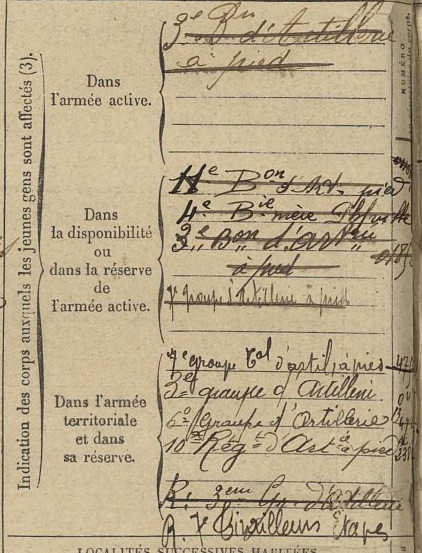 Indication des corps auxquels les jeunes gens sont affectés (3).
Dans
l'armée active.
3e Bn d'Artillerie
à pied
Dans
la disponibilité
ou
dans la réserve
de
l'armée active.
11e Bon d'Art. à pied
4e Bie
3e Bon d'Art
à pied
7e groupe d'artillerie à pied
Dans l'armée
territoriale
et dans
sa réserve.
7e groupe tal d'artil. à pied
2e groupe d'Artillerie
6e Groupe d'Artillerie
10e Régt d'Artie à pied
R. 3eme Gr. d'Artillerie
R. 7e Tirailleurs Étapes
NUMÉRO
LOCALITÉS SUCCESSIVES HABITÉES